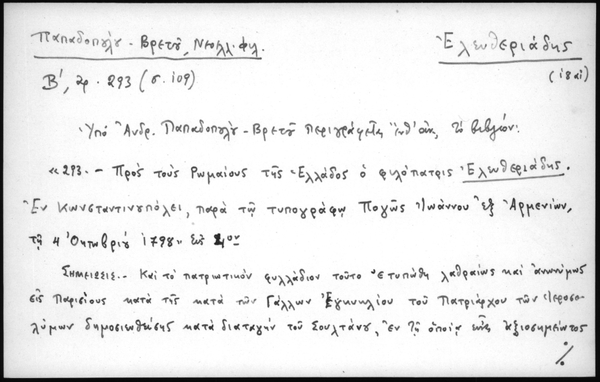 Παπαδοπȣ́λȣ - Βρετȣ͂, Νεοελλ. φιλ.
Ἐλευθεριάδης
Β΄, ἀρ. 293 (σ. 109)
(ἰδαί)
Ὑπό Ἀνδρ. Παπαδοπȣ́λȣ - Βρετȣ͂ περιγράφεται τό βιβλίον:
«293. — Πρὸς τοὺς Ρωμαίους τῆς Ἑλλάδος ὁ φιλόπατρις Ἐλευθεριάδης.
Ἐν Κωνσταντινουπόλει, παρὰ τῷ τυπογράφῳ Πογὼς Ἰωάννου ἐξ Ἀρμενίων,
τῇ 4 Ὀκτωβρίȣ 1798» εἰς 4ον
Σημείωσις.- Καὶ τὸ πατριωτικὸν φυλλάδιον τοῦτο ἐτυπώθη λαθραίως καὶ ἀνωνύμως
εἰς Παρισίους κατὰ τῆς κατὰ τῶν Γάλλων Ἐγκυκλίου τοῦ Πατριάρχου τῶν Ἱεροσο-
λύμων δημοσιευθείσης κατὰ διαταγὴν τοῦ Σουλτάνου, ἐν τῇ ὁποίᾳ εἶναι ἀξιοσημείωτος
%